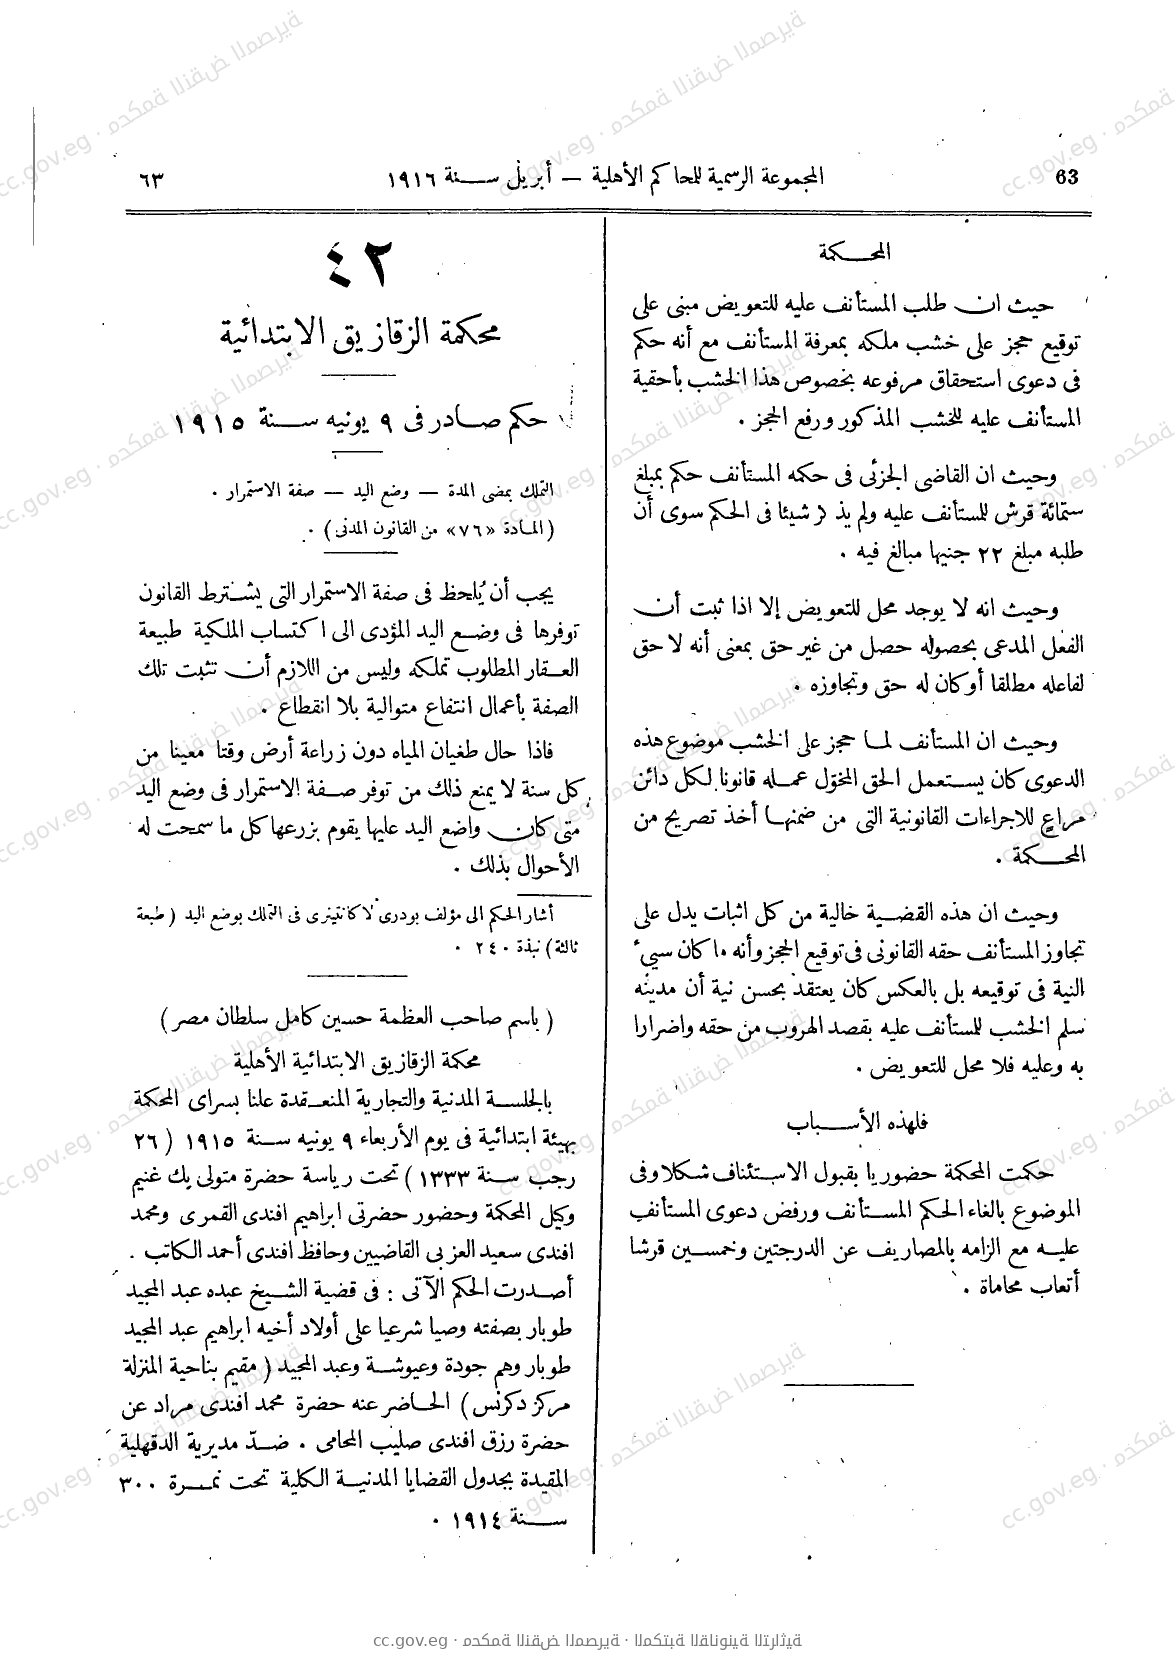 63 المجموعة الرسمية للمحاكم الأهلية — أبريل سنة ١٩١٦ ٦٣
المحكمة
حيث ان طلب المستأنف عليه للتعويض مبنى على
توقيع حجز على خشب ملكه بمعرفة المستأنف مع أنه حكم
فى دعوى استحقاق مرفوعه بخصوص هذا الخشب بأحقية
المستأنف عليه للخشب المذكور ورفع الحجز .
وحيث ان القاضى الجزئى فى حكمه المستأنف حكم بمبلغ
ستمائة قرش للمستأنف عليه ولم يذكر شيئا فى الحكم سوى أن
طلبه مبلغ ٢٢ جنيها مبالغ فيه .
وحيث انه لا يوجد محل للتعويض إلا اذا ثبت أن
الفعل المدعى بحصوله حصل من غير حق بمعنى أنه لا حق
لفاعله مطلقا أو كان له حق وتجاوزه .
وحيث ان المستأنف لما حجز على الخشب موضوع هذه
الدعوى كان يستعمل الحق المخوّل عمله قانونا لكل دائن
مراعٍ للاجراءات القانونية التى من ضمنها أخذ تصريح من
المحكمة .
وحيث ان هذه القضية خالية من كل اثبات يدل على
تجاوز المستأنف حقه القانونى فى توقيع الحجز وأنه ما كان سيئ
النية فى توقيعه بل بالعكس كان يعتقد بحسن نية أن مدينه
سلم الخشب للمستأنف عليه بقصد الهروب من حقه واضرارا
به وعليه فلا محل للتعويض .
فلهذه الأسباب
حكمت المحكمة حضوريا بقبول الاستئناف شكلا وفى
الموضوع بالغاء الحكم المستأنف ورفض دعوى المستأنف
عليه مع الزامه بالمصاريف عن الدرجتين وخمسين قرشا
أتعاب محاماة .
٤٢
محكمة الزقازيق الابتدائية
حكم صادر فى ٩ يونيه سنة ١٩١٥
التملك بمضى المدة — وضع اليد — صفة الاستمرار .
(المادة «٧٦» من القانون المدنى) .
يجب أن يُلحظ فى صفة الاستمرار التى يشترط القانون
توفرها فى وضع اليد المؤدى الى اكتساب الملكية طبيعة
العقار المطلوب تملكه وليس من اللازم أن تثبت تلك
الصفة بأعمال انتفاع متوالية بلا انقطاع .
فاذا حال طغيان المياه دون زراعة أرض وقتا معينا من
كل سنة لا يمنع ذلك من توفر صفة الاستمرار فى وضع اليد
متى كان واضع اليد عليها يقوم بزرعها كل ما سمحت له
الأحوال بذلك .
أشار الحكم الى مؤلف بودرى لاكانتينرى فى التملك بوضع اليد (طبعة
ثالثة) نبذة ٢٤٠ .
(باسم صاحب العظمة حسين كامل سلطان مصر)
محكمة الزقازيق الابتدائية الأهلية
بالجلسة المدنية والتجارية المنعقدة علنا بسراى المحكمة
بهيئة ابتدائية فى يوم الأربعاء ٩ يونيه سنة ١٩١٥ (٢٦
رجب سنة ١٣٣٣) تحت رياسة حضرة متولى بك غنيم
وكيل المحكمة وحضور حضرتى ابراهيم افندى القمرى ومحمد
افندى سعيد العزبى القاضيين وحافظ افندى أحمد الكاتب .
أصدرت الحكم الآتى : فى قضية الشيخ عبده عبد المجيد
طوبار بصفته وصيا شرعيا على أولاد أخيه ابراهيم عبد المجيد
طوبار وهم جودة وعيوشة وعبد المجيد (مقيم بناحية المنزلة
مركز دكرنس) الحاضر عنه حضرة محمد افندى مراد عن
حضرة رزق افندى صليب المحامى . ضدّ مديرية الدقهلية
المقيدة بجدول القضايا المدنية الكلية تحت نمرة ٣٠٠
سنة ١٩١٤ .
cc.gov.eg · محكمة النقض المصرية · المكتبة القانونية التراثية